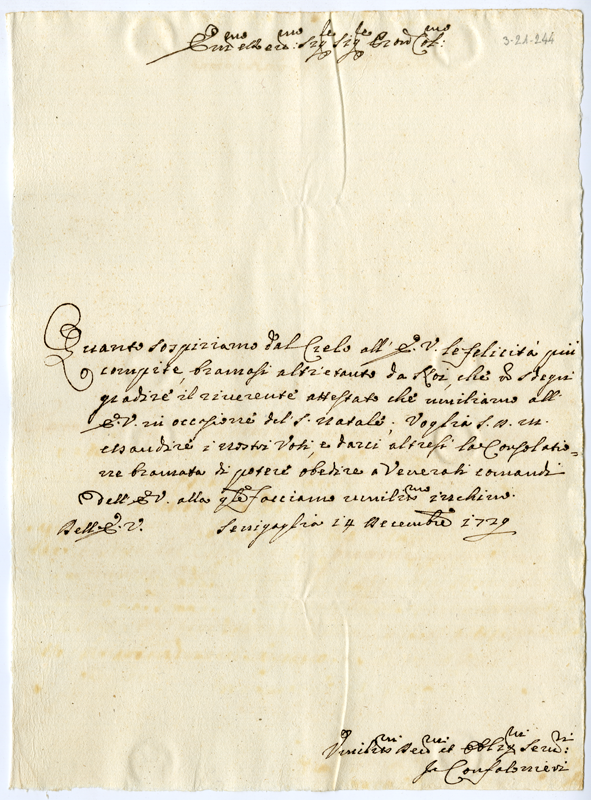 Em.mo e Rev.mo Sig.re Sig.re Pron Col.mo
3-21-244
Quanto sospiriamo dal Cielo all'E.V. le felicità più
compite, bramasi altretanto da Noi, che si degni
gradire il riverente attestato che umiliamo all'
E.V. in occasione del S. Natale; Voglia S.D.M.
esaudire i nostri Voti, e darci altresì la Consolatio=
ne bramata di potere obedire a Venerati comandi
dell'E.V. alla q.le facciamo umilis.mo inchino.
Dell'E.V. Senigaglia 14 Decembre 1729
Umilis.mi Dev.mi et Oblig.mi Serv.ri
Il Confalonieri